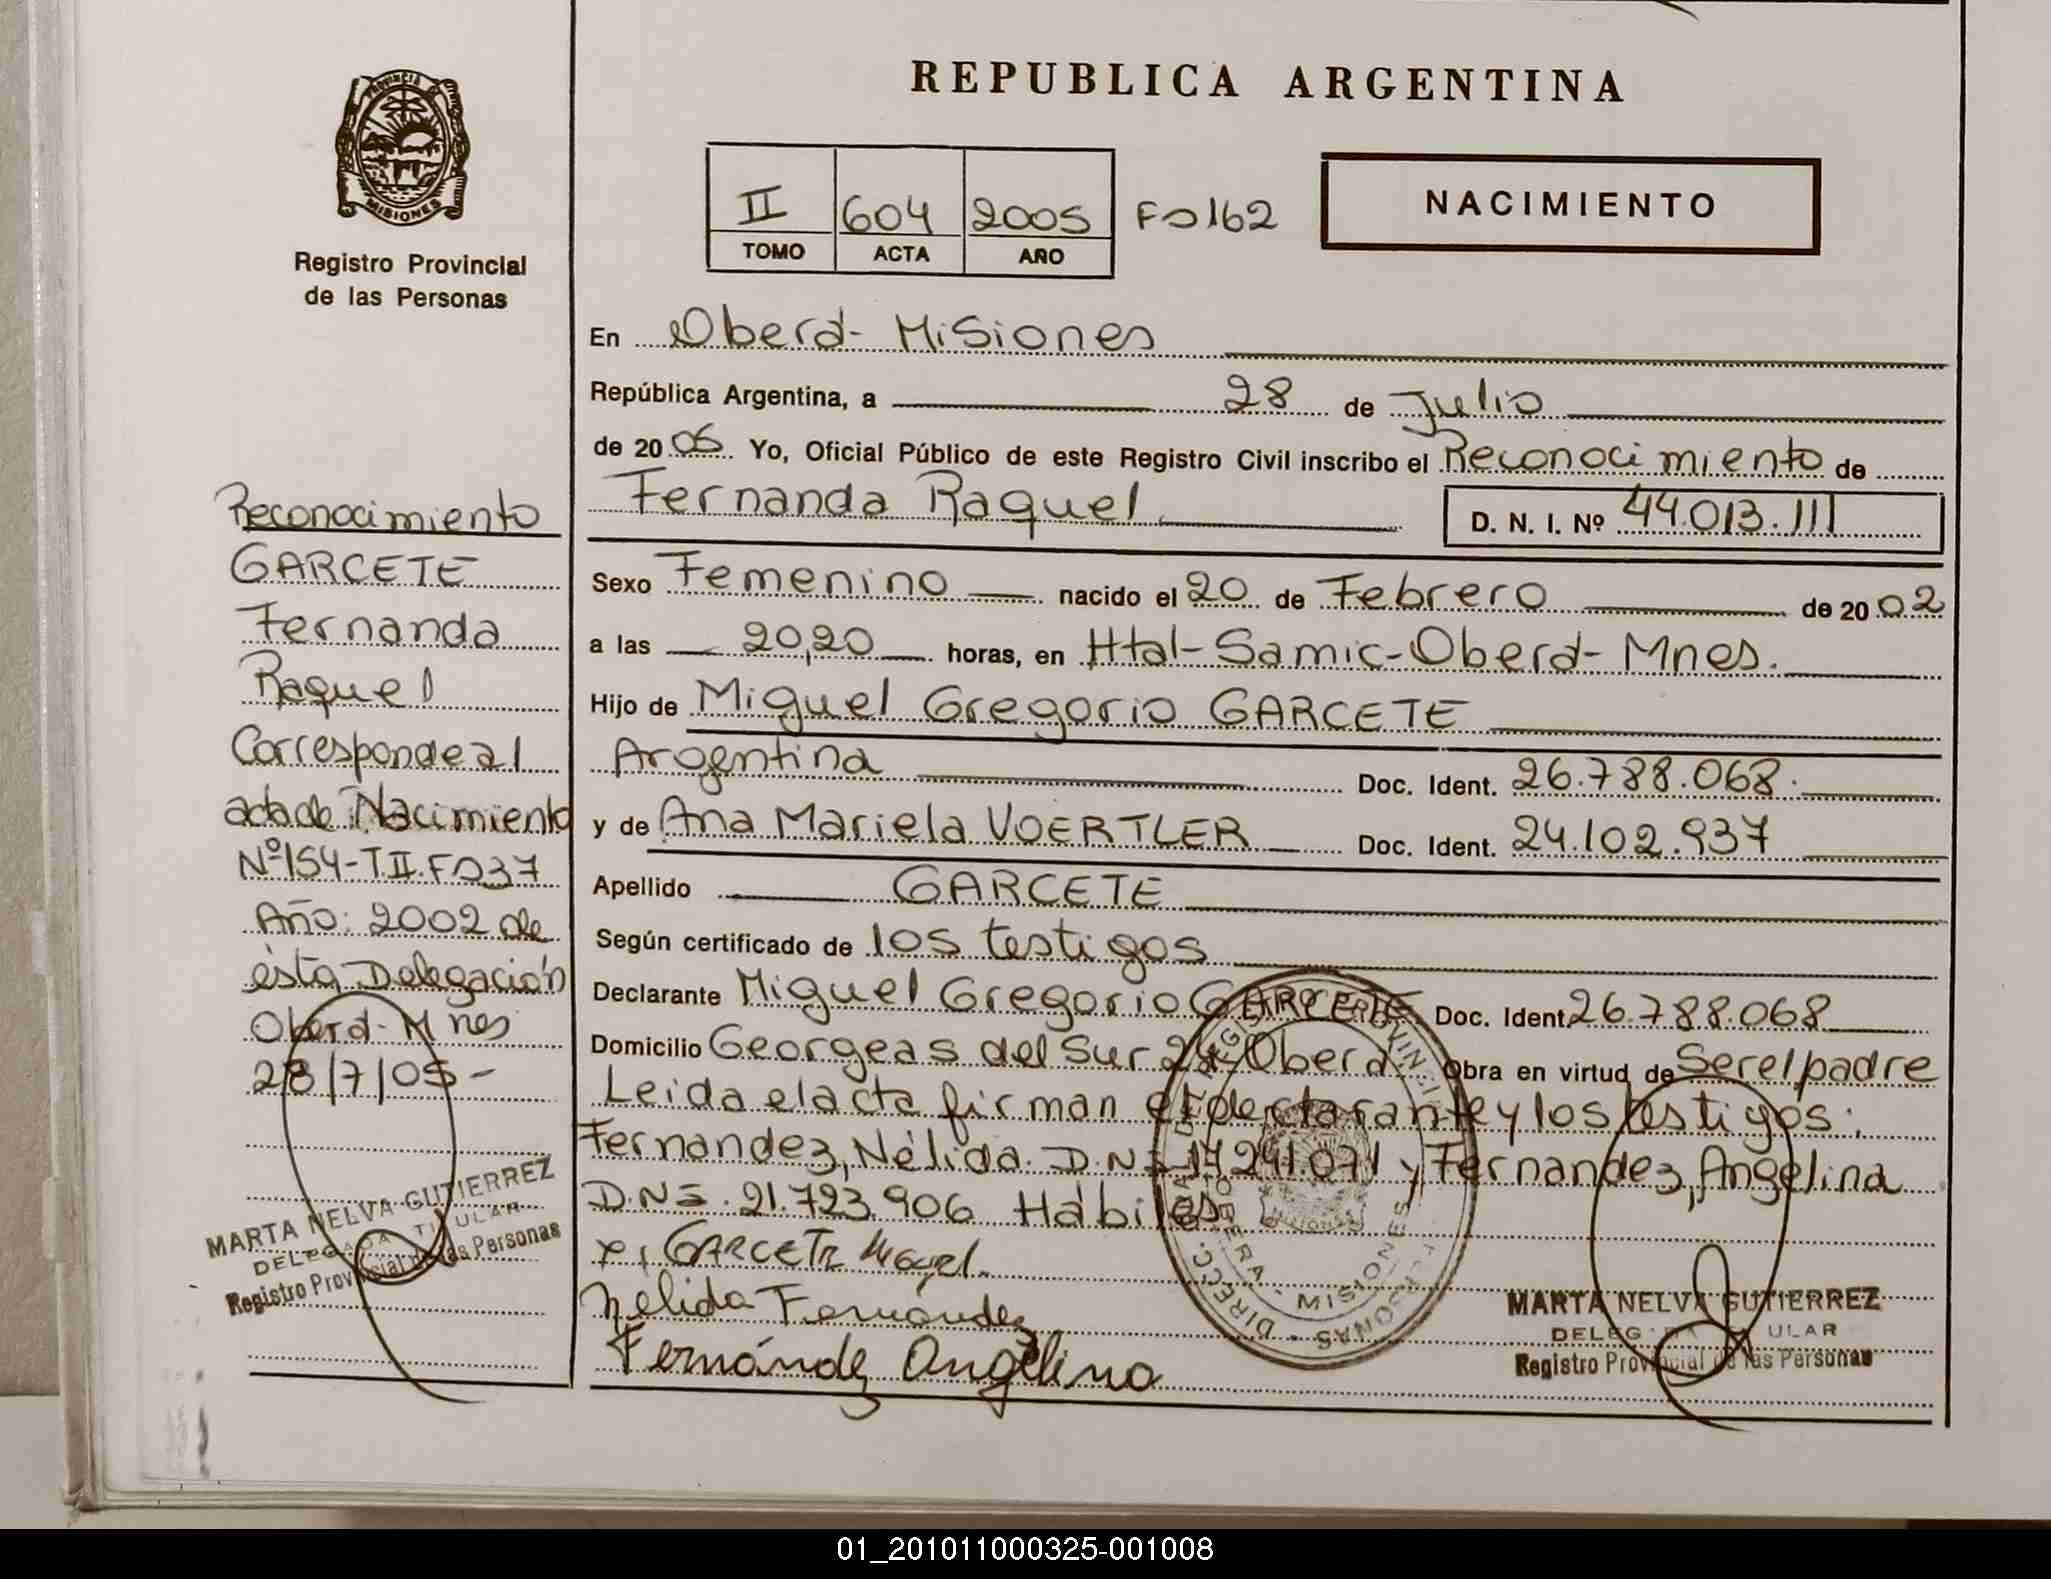 REPUBLICA ARGENTINA
PROVINCIA DE
MISIONES
Registro Provincial
de las Personas
II 604 2005 Fº162
TOMO ACTA AÑO
NACIMIENTO
En Oberá- Misiones
República Argentina, a 28 de Julio
de 20 05 Yo, Oficial Público de este Registro Civil inscribo el Reconocimiento de
Fernanda Raquel
D. N. I. Nº 44.013.111
Sexo Femenino nacido el 20 de Febrero de 20 02
a las 20,20 horas, en Htal-Samic-Oberá-Mnes.
Hijo de Miguel Gregorio GARCETE
Argentina Doc. Ident. 26.788.068.
y de Ana Mariela VOERTLER Doc. Ident. 24.102.937
Apellido GARCETE
Según certificado de los testigos
Declarante Miguel Gregorio GARCETE Doc. Ident. 26.788.068
Domicilio Georgeas del Sur Oberá Obra en virtud de Ser el padre
Leida el acta firman el declarante y los testigos:
Fernandez, Nélida. D.N.I 17.241.071 y Fernandez, Angelina
D.N.I. 21.723.906 Hábiles
GARCETE Miguel.
Nelida Fernández
Fernández Angelina
MARTA NELVA GUTIERREZ
DELEGADA TITULAR
Registro Provincial de las Personas
Reconocimiento
GARCETE
Fernanda
Raquel
Corresponde al
acta de Nacimiento
Nº154-T.II.Fº37
Año: 2002 de
ésta Delegación
Oberá-Mnes
28/7/05-
MARTA NELVA GUTIERREZ
DELEGADA TITULAR
Registro Provincial de las Personas
MISIONES
01_201011000325-001008